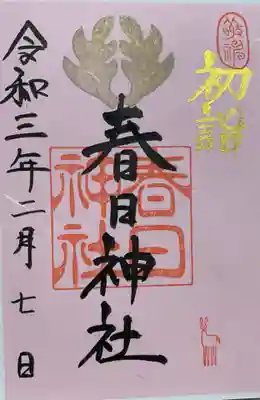 初詣
春日神社
春日
神社
令和三年二月七日